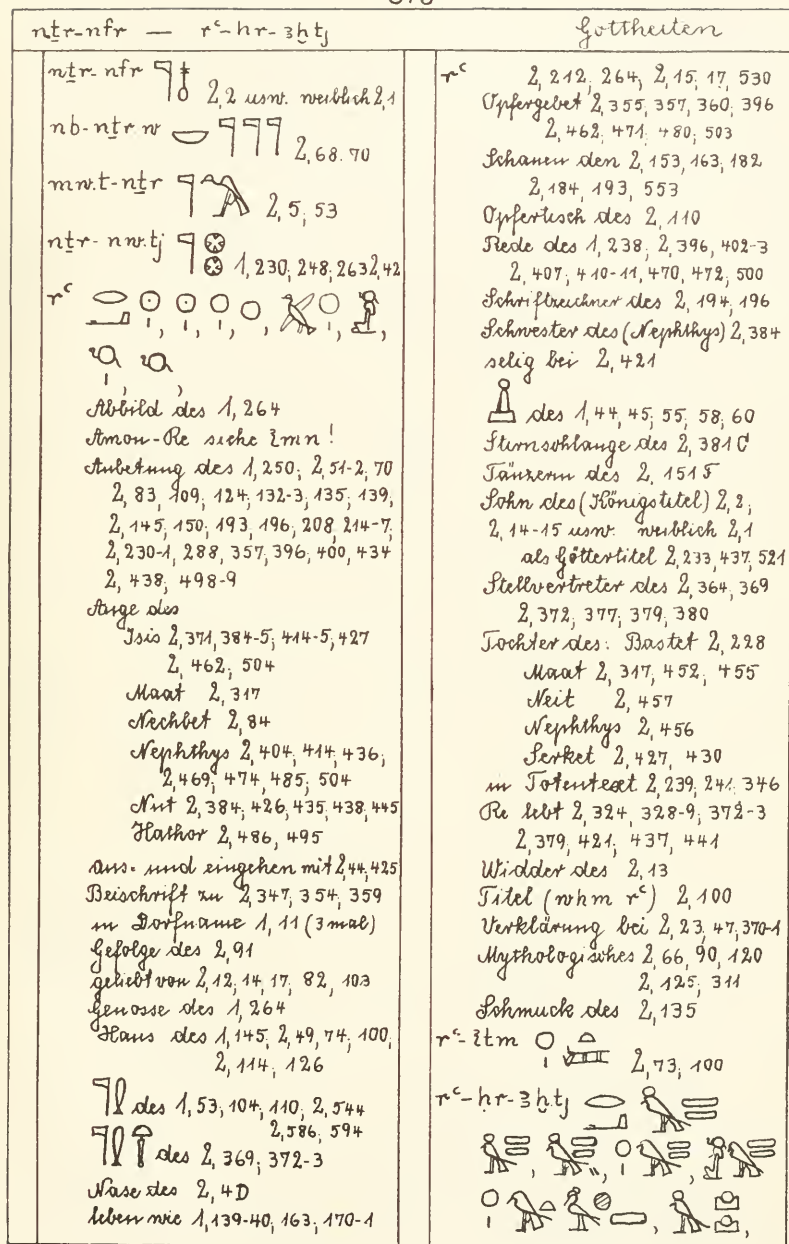 nṯr-nfr — rꜥ-ḥr-ꜣḫtj
Gottheiten
nṯr-nfr 𓊹𓄤 2,2 usw. weiblich 2,1
nb-nṯr.w 𓎟 𓊹𓊹𓊹 2,68.70
mw.t-nṯr 𓊹𓅐 2,5; 53
nṯr-nw.tj 𓊹𓊖𓊖 1,230; 248; 263 2,42
rꜥ
Abbild des 1,264
Amon-Re siehe imn!
Anbetung des 1,250; 2,51-2; 70
2, 83, 109; 124; 132-3; 135; 139,
2, 145; 150; 193, 196; 208, 214-7,
2, 230-1, 288, 357, 396, 400, 434
2, 438, 498-9
Auge des
Isis 2,371, 384-5; 414-5; 427
2, 462; 504
Maat 2,317
Nechbet 2,84
Nephthys 2,404, 414, 436;
2,469; 474, 485; 504
Nut 2,384; 426, 435, 438, 445
Hathor 2,486, 495
aus- und eingehen mit 2,44,425
Beischrift zu 2,347, 354, 359
in Dorfname 1,11 (3mal)
Gefolge des 2,91
geliebt von 2,12; 14, 17; 82, 103
Genosse des 1,264
Haus des 1,145; 2,49, 74; 100,
2, 114; 126
des 1,53; 104; 110; 2,544
2,586; 594
des 2,369; 372-3
Nase des 2,4D
leben wie 1,139-40; 163; 170-1
rꜥ 2,212; 264; 2,15; 17, 530
Opfergebet 2,355; 357; 360; 396
2, 462; 471; 480; 503
Schauen den 2,153, 163; 182
2, 184, 193, 553
Opfertisch des 2,110
Rede des 1,238; 2,396, 402-3
2, 407; 410-11, 470, 472; 500
Schriftzeichner des 2,194; 196
Schwester des (Nephthys) 2,384
selig bei 2,421
des 1,44, 45; 55, 58; 60
Stirnschlange des 2,381C
Tänzerin des 2,151F
Sohn des (Königstitel) 2,2;
2,14-15 usw. weiblich 2,1
als Göttertitel 2,233, 437; 521
Stellvertreter des 2,364, 369
2, 372; 377; 379; 380
Tochter des: Bastet 2,228
Maat 2,317, 452; 455
Neit 2,457
Nephthys 2,456
Serket 2,427, 430
in Totentext 2,239; 241; 346
Re lebt 2,324, 328-9; 372-3
2, 379; 421; 437, 441
Widder des 2,13
Titel (wḥm rꜥ) 2,100
Verklärung bei 2,23, 47; 370-1
Mythologisches 2,66, 90, 120
2, 125; 311
Schmuck des 2,135
rꜥ-itm 2,73; 100
rꜥ-ḥr-ꜣḫtj